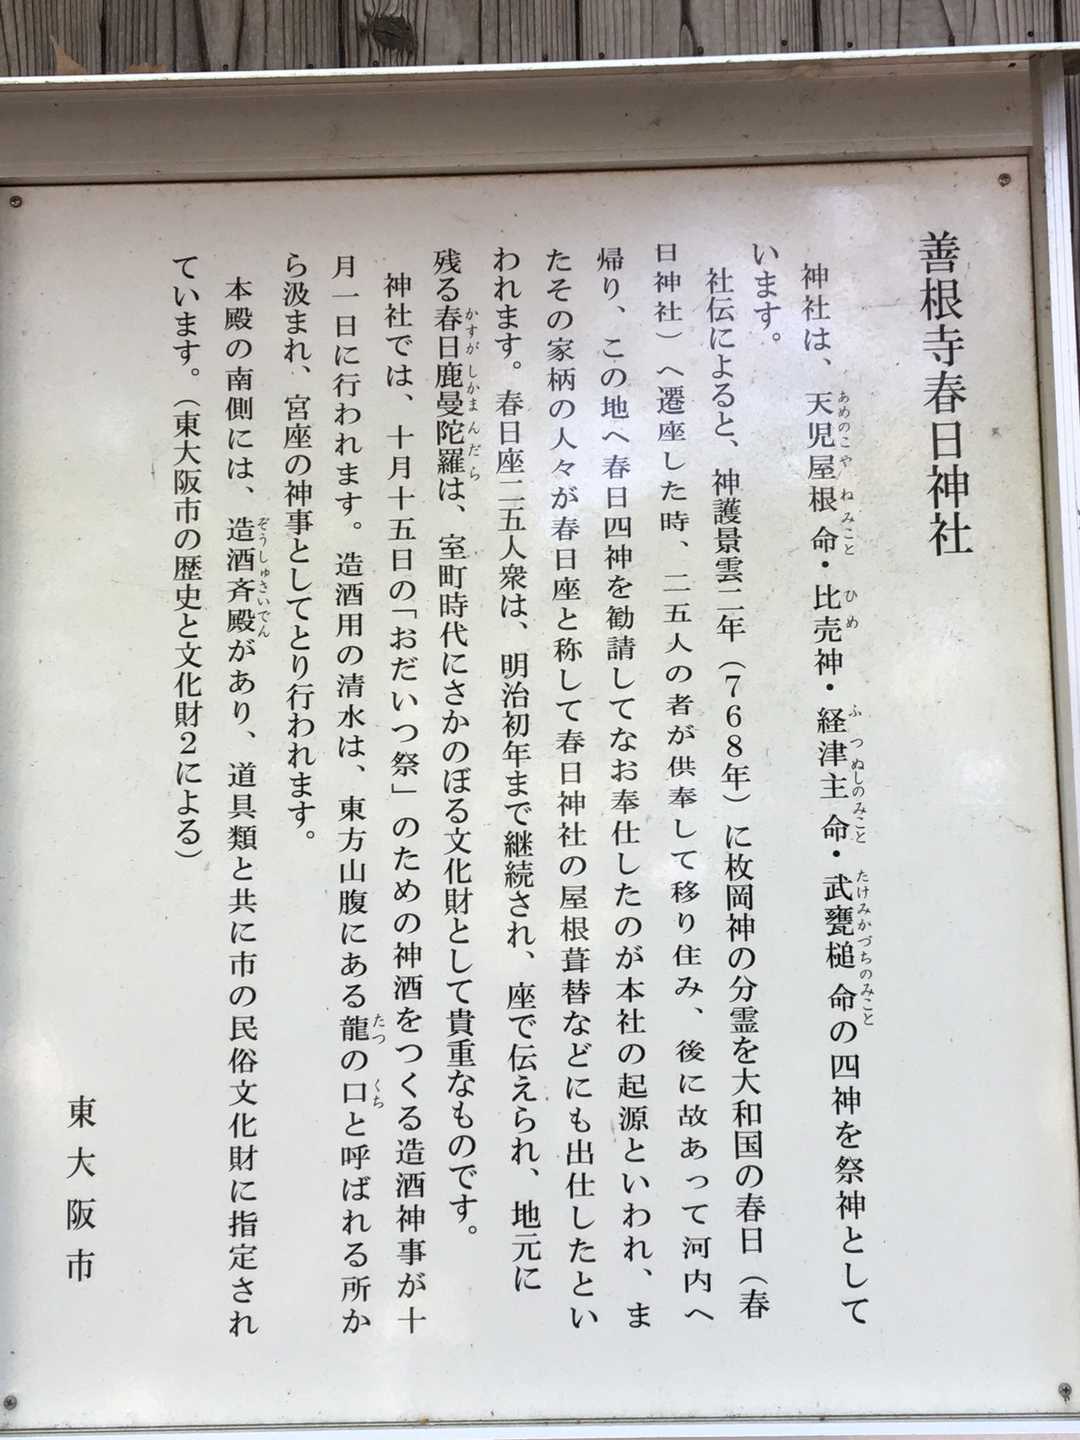 善根寺春日神社
神社は、天児屋根命・比売神・経津主命・武甕槌命の四神を祭神として
います。
社伝によると、神護景雲二年（768年）に枚岡神の分霊を大和国の春日（春
日神社）へ遷座した時、二五人の者が供奉して移り住み、後に故あって河内へ
帰り、この地へ春日四神を勧請してなお奉仕したのが本社の起源といわれ、ま
たその家柄の人々が春日座と称して春日神社の屋根葺替などにも出仕したとい
われます。春日座二五人衆は、明治初年まで継続され、座で伝えられ、地元に
残る春日鹿曼陀羅は、室町時代にさかのぼる文化財として貴重なものです。
神社では、十月十五日の「おだいつ祭」のための神酒をつくる造酒神事が十
月一日に行われます。造酒用の清水は、東方山腹にある龍の口と呼ばれる所か
ら汲まれ、宮座の神事としてとり行われます。
本殿の南側には、造酒斉殿があり、道具類と共に市の民俗文化財に指定され
ています。（東大阪市の歴史と文化財2による）
東大阪市